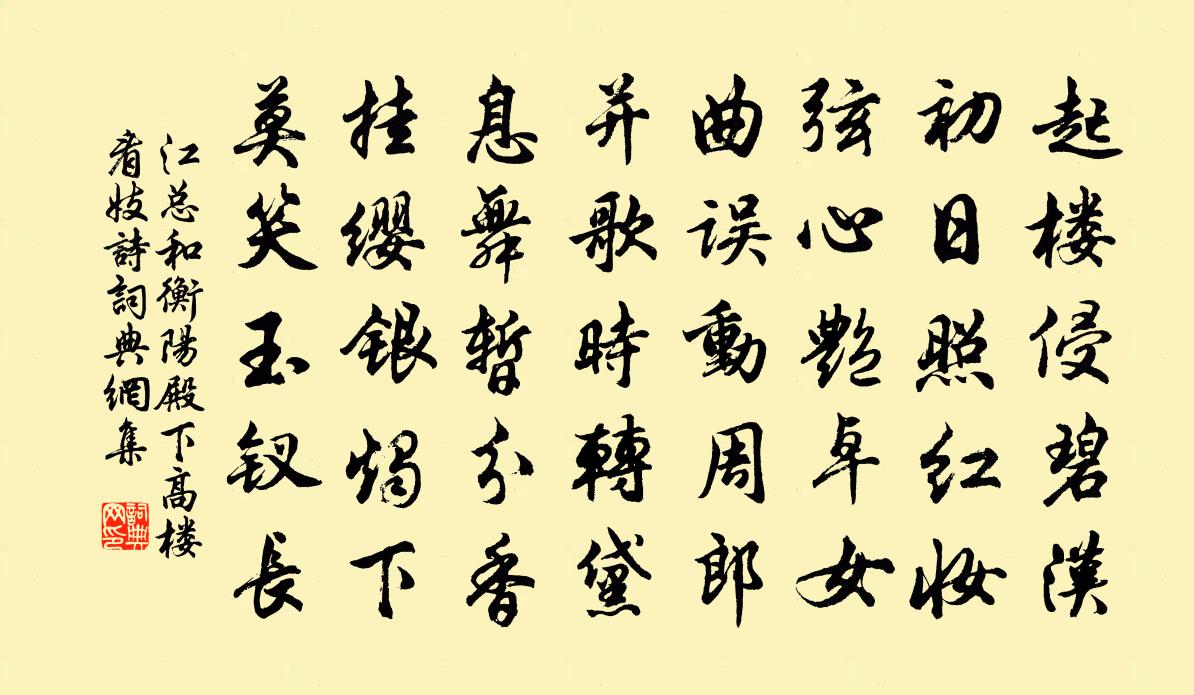 起楼侵碧漢
初日照红妆
弦心艷卓女
曲误動周郎
并歌時轉黛
息舞暫分香
挂缨银燭下
莫笑玉钗長
江总和衡陽殿下高楼
看妓詩詞典網集
詞典
网印